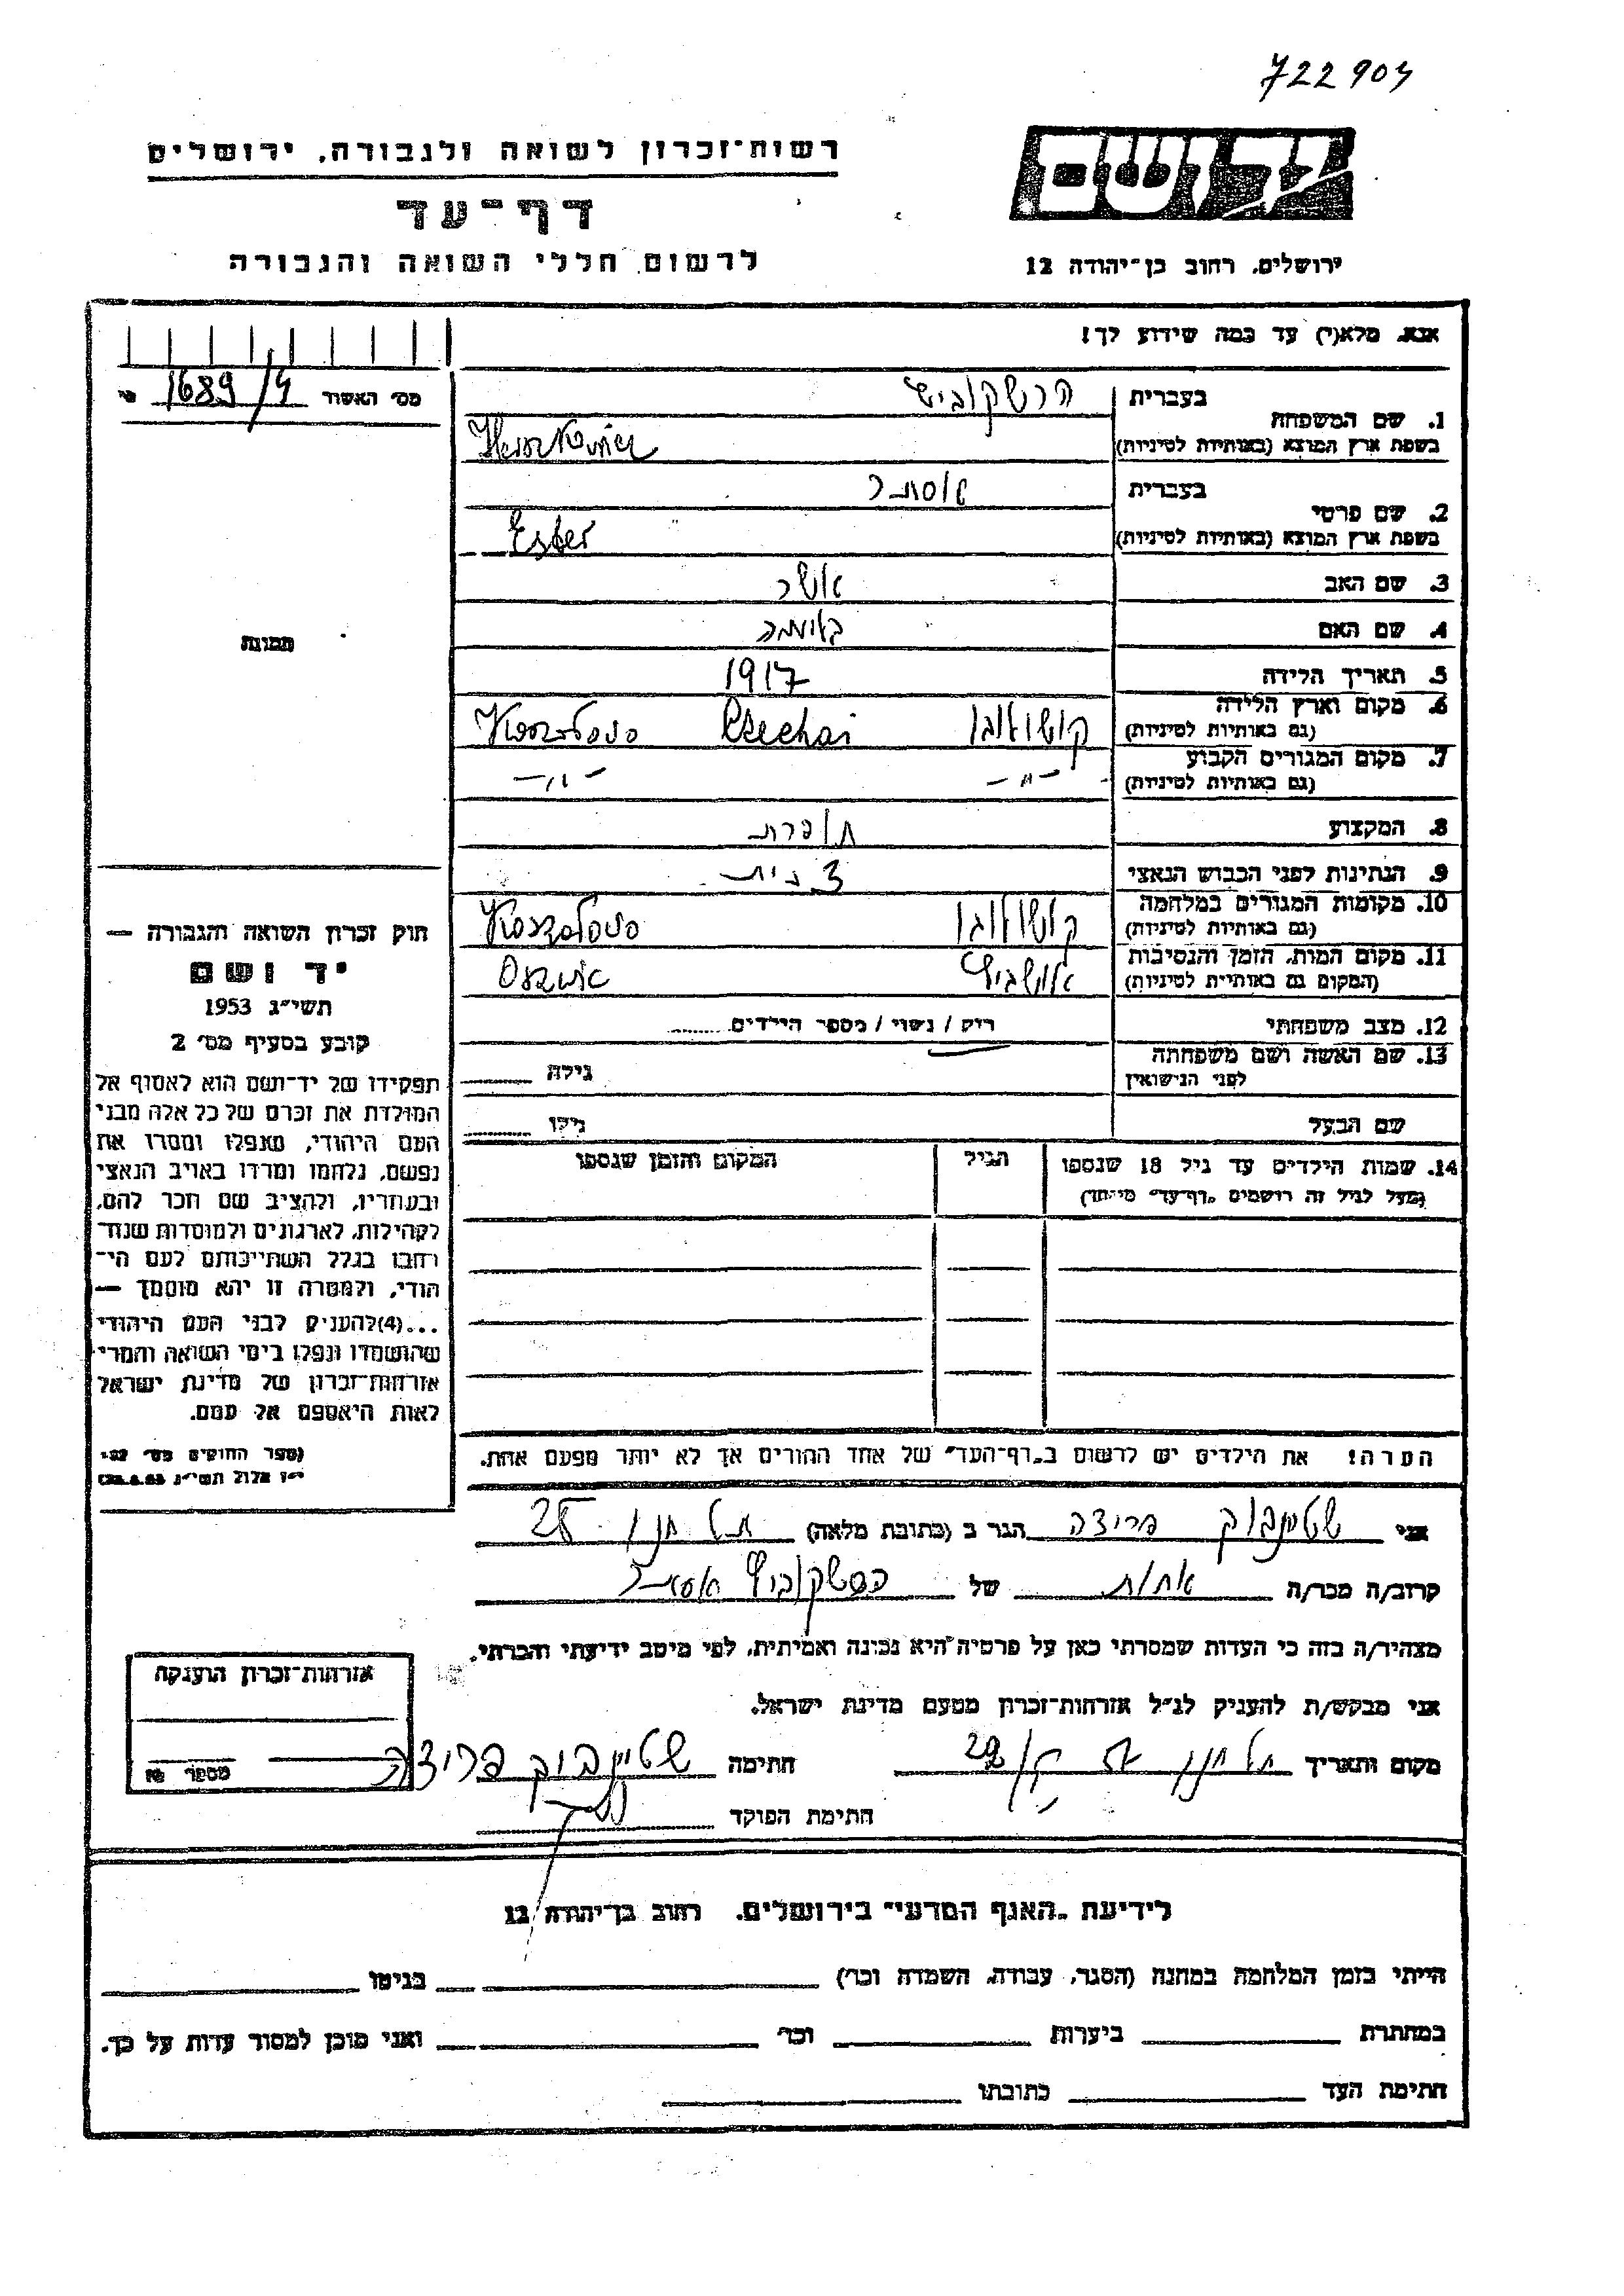 722904
רשות־זכרון לשואה ולגבורה, ירושלים
יד ושם
דף־עד
לרשום חללי השואה והגבורה
ירושלים, רחוב בן־יהודה 12
אנא, מלא(י) עד כמה שידוע לך!
מס׳ האשור 1689/4
1. שם המשפחה
בעברית הרשקוביש
בשפת ארץ המוצא (באותיות לטיניות)
2. שם פרטי
בעברית אסתר
בשפת ארץ המוצא (באותיות לטיניות) Ester
3. שם האב אשר
4. שם האם בלומה
5. תאריך הלידה 1917
6. מקום וארץ הלידה
(גם באותיות לטיניות)
7. מקום המגורים הקבוע
(גם באותיות לטיניות) -"- -"-
8. המקצוע תופרת
9. הנתינות לפני הכבוש הנאצי
10. מקומות המגורים במלחמה
(גם באותיות לטיניות)
11. מקום המות, הזמן והנסיבות
(המקום גם באותיות לטיניות) אושביץ
12. מצב משפחתי רוק / נשוי / מספר הילדים
13. שם האשה ושם משפחתה
לפני הנישואין גילה
שם הבעל גילו
14. שמות הילדים עד גיל 18 שנספו הגיל המקום והזמן שנספו
(מעל לגיל זה רושמים „דף־עד״ מיוחד)
הערה! את הילדים יש לרשום ב„דף־העד״ של אחד ההורים אך לא יותר מפעם אחת.
תמונה
חוק זכרון השואה והגבורה —
יד ושם
תשי״ג 1953
קובע בסעיף מס׳ 2
תפקידו של יד־ושם הוא לאסוף אל
המולדת את זכרם של כל אלה מבני
העם היהודי, שנפלו ומסרו את
נפשם, נלחמו ומרדו באויב הנאצי
ובעוזריו, ולהציב שם וזכר להם,
לקהילות, לארגונים ולמוסדות שנח־
רבו בגלל השתייכותם לעם הי־
הודי, ולמטרה זו יהא מוסמך —
...(4)להעניק לבני העם היהודי
שהושמדו ונפלו בימי השואה והמרי
אזרחות־זכרון של מדינת ישראל
לאות היאספם אל עמם.
(ספר החוקים מס׳ 132
י״ז אלול תשי״ג 28.8.53)
אני שטיינבוק פריצה הגר ב (כתובת מלאה) תל חנן 28
קרוב/ה מכר/ה אחות של הרשקוביץ אסתר
מצהיר/ה בזה כי העדות שמסרתי כאן על פרטיה היא נכונה ואמיתית, לפי מיטב ידיעתי והכרתי.
אני מבקש/ת להעניק לנ״ל אזרחות־זכרון מטעם מדינת ישראל.
מקום ותאריך תל חנן חתימה שטיינבוק פריצה
חתימת הפוקד
אזרחות־זכרון הוענקה
מספר
לידיעת „האגף המדעי״ בירושלים, רחוב בן־יהודה 12
הייתי בזמן המלחמה במחנה (הסגר, עבודה, השמדה וכו׳) בגיטו
במחתרת ביערות וכו׳ ואני מוכן למסור עדות על כך.
חתימת העד כתובתו